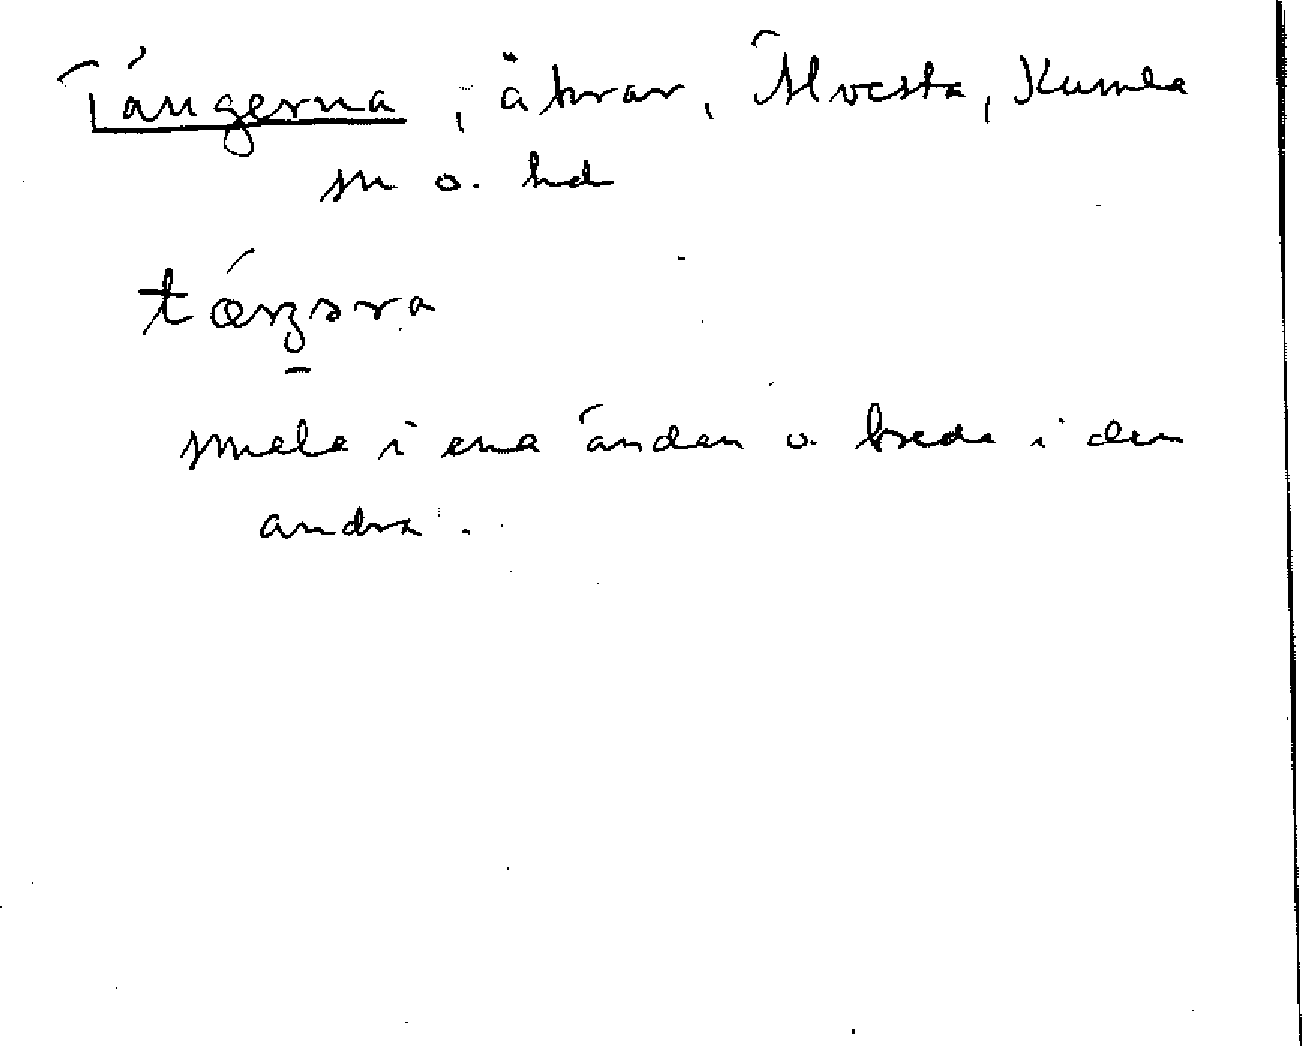 Tängerna, åkrar, Älvesta, Kumla
sn o. hd
smala i ena ändan o. breda i den
andra.